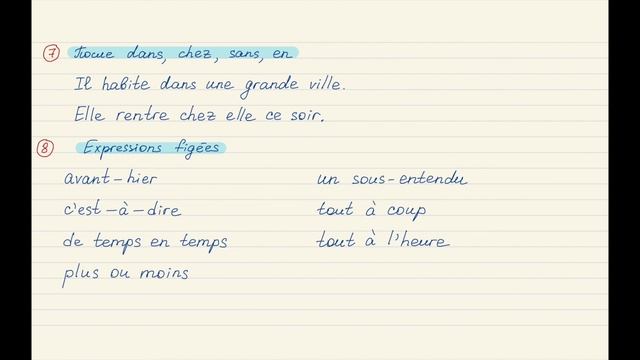 7 После dans, chez, sans, en
Il habite dans une grande ville.
Elle rentre chez elle ce soir.
8 Expressions figées
avant-hier
c'est-à-dire
de temps en temps
plus ou moins
un sous-entendu
tout à coup
tout à l'heure